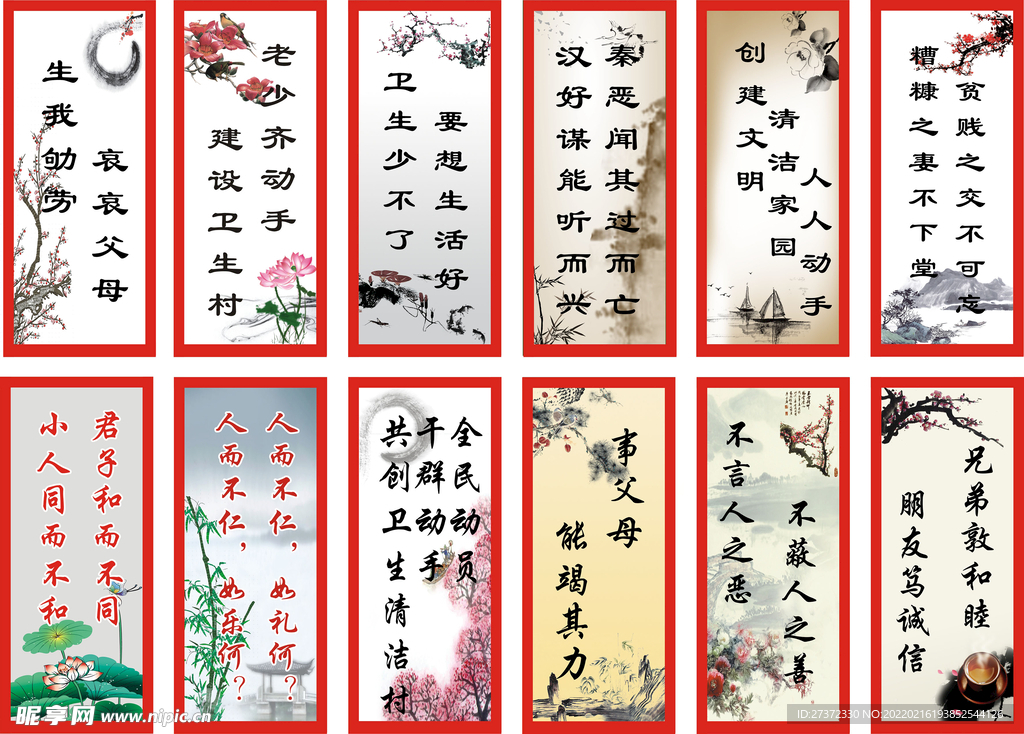 哀哀父母
生我劬劳
老少齐动手
建设卫生村
要想生活好
卫生少不了
秦恶闻其过而亡
汉好谋能听而兴
人人动手
清洁家园
创建文明
贫贱之交不可忘
糟糠之妻不下堂
君子和而不同
小人同而不和
人而不仁,如礼何?
人而不仁,如乐何?
全民动员
干群动手
共创卫生清洁村
事父母
能竭其力
不蔽人之善
不言人之恶
兄弟敦和睦
朋友笃诚信
昵享网 www.nipic.cn
ID:27372330 NO:20220216193852544126